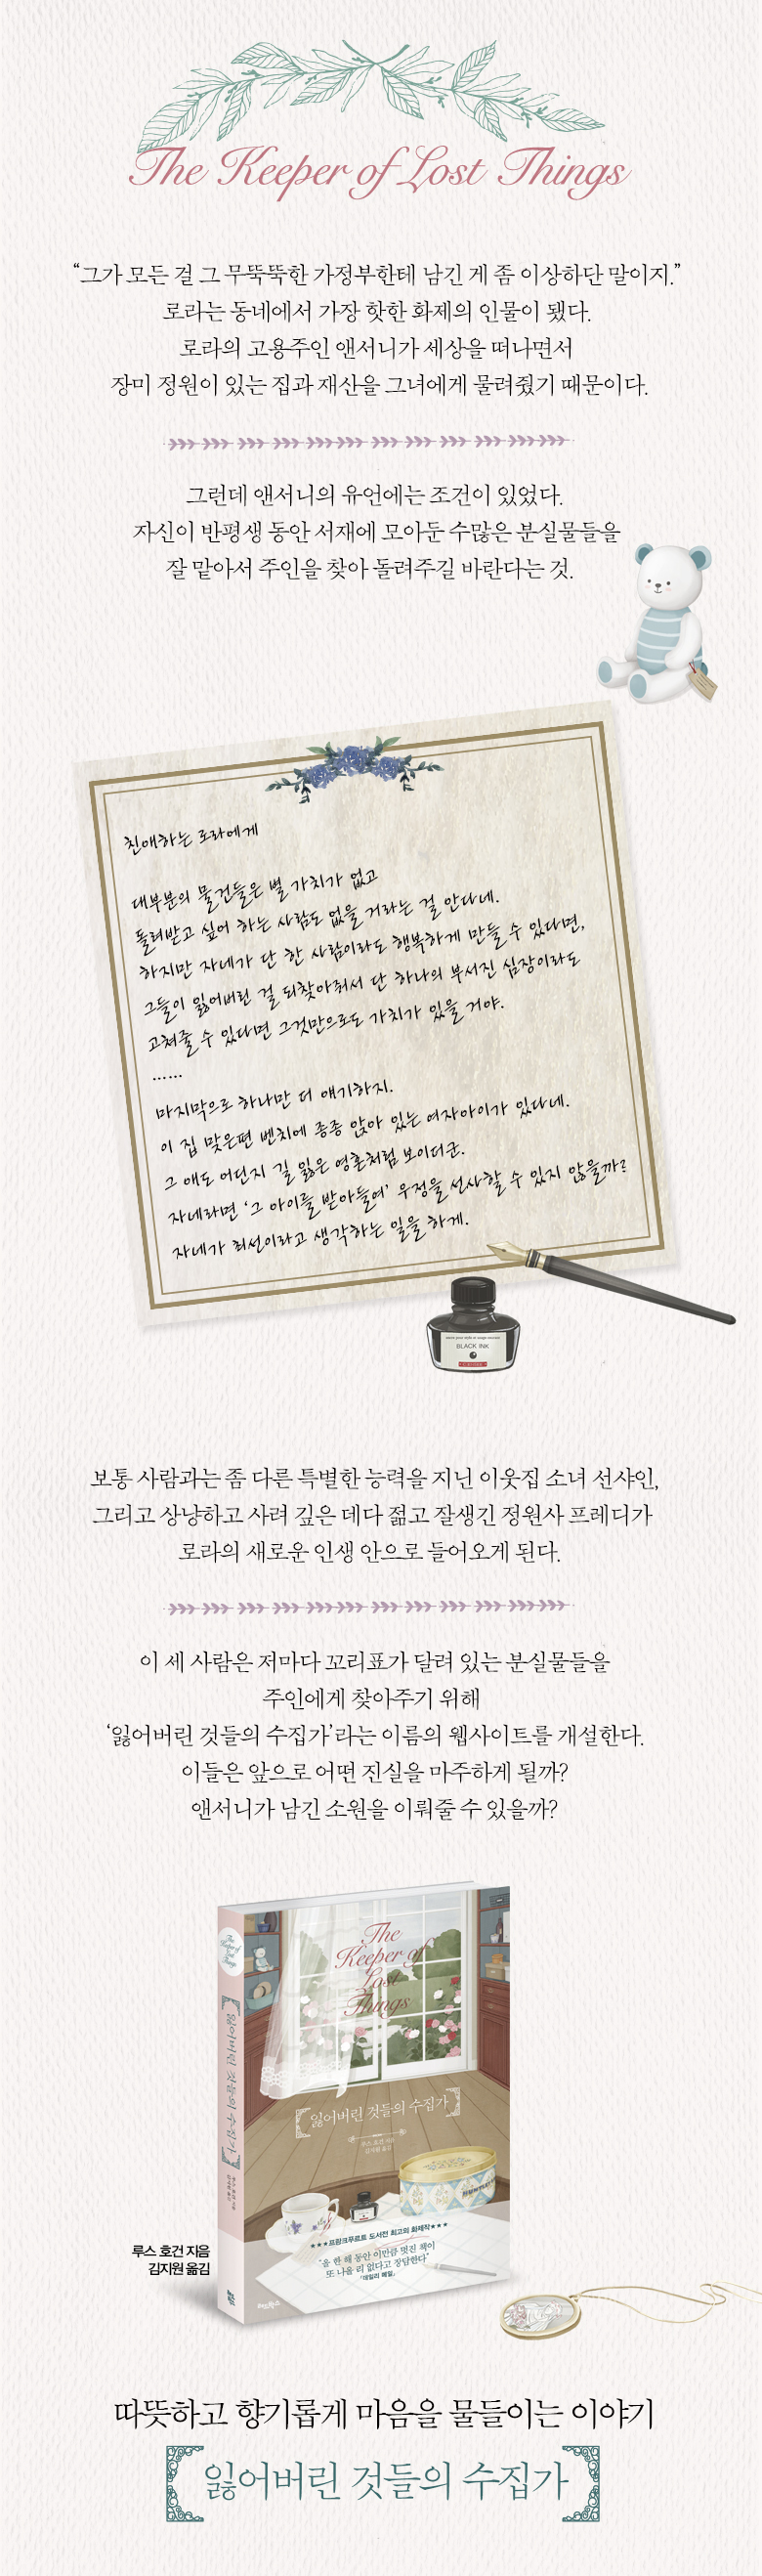 The Keeper of Lost Things
“그가 모든 걸 그 무뚝뚝한 가정부한테 남긴 게 좀 이상하단 말이지.”
로라는 동네에서 가장 핫한 화제의 인물이 됐다.
로라의 고용주인 앤서니가 세상을 떠나면서
장미 정원이 있는 집과 재산을 그녀에게 물려줬기 때문이다.
그런데 앤서니의 유언에는 조건이 있었다.
자신이 반평생 동안 서재에 모아둔 수많은 분실물들을
잘 맡아서 주인을 찾아 돌려주길 바란다는 것.
친애하는 로라에게
대부분의 물건들은 별 가치가 없고
돌려받고 싶어 하는 사람도 없을 거라는 걸 안다네.
하지만 자네가 단 한 사람이라도 행복하게 만들 수 있다면,
그들이 잃어버린 걸 되찾아줘서 단 하나의 부서진 심장이라도
고쳐줄 수 있다면 그것만으로도 가치가 있을 거야.
......
마지막으로 하나만 더 얘기하지.
이 집 맞은편 벤치에 종종 앉아 있는 여자아이가 있다네.
그 애도 어딘지 길 잃은 영혼처럼 보이더군.
자네라면 ‘그 아이를 받아들여’ 우정을 선사할 수 있지 않을까?
자네가 최선이라고 생각하는 일을 하게.
BLACK INK
보통 사람과는 좀 다른 특별한 능력을 지닌 이웃집 소녀 선샤인,
그리고 상냥하고 사려 깊은 데다 젊고 잘생긴 정원사 프레디가
로라의 새로운 인생 안으로 들어오게 된다.
이 세 사람은 저마다 꼬리표가 달려 있는 분실물들을
주인에게 찾아주기 위해
‘잃어버린 것들의 수집가’라는 이름의 웹사이트를 개설한다.
이들은 앞으로 어떤 진실을 마주하게 될까?
앤서니가 남긴 소원을 이뤄줄 수 있을까?
The
Keeper of
Lost
Things
The Keeper of Lost Things
잃어버린 것들의 수집가
잃어버린 것들의 수집가
루스 호건 지음
김지원 옮김
★★★프랑크푸르트 도서전 최고의 화제작★★★
“올 한 해 동안 이만큼 멋진 책이
또 나올 리 없다고 장담한다”
『데일리 메일』
루스 호건 지음
김지원 옮김
따뜻하고 향기롭게 마음을 물들이는 이야기
잃어버린 것들의 수집가